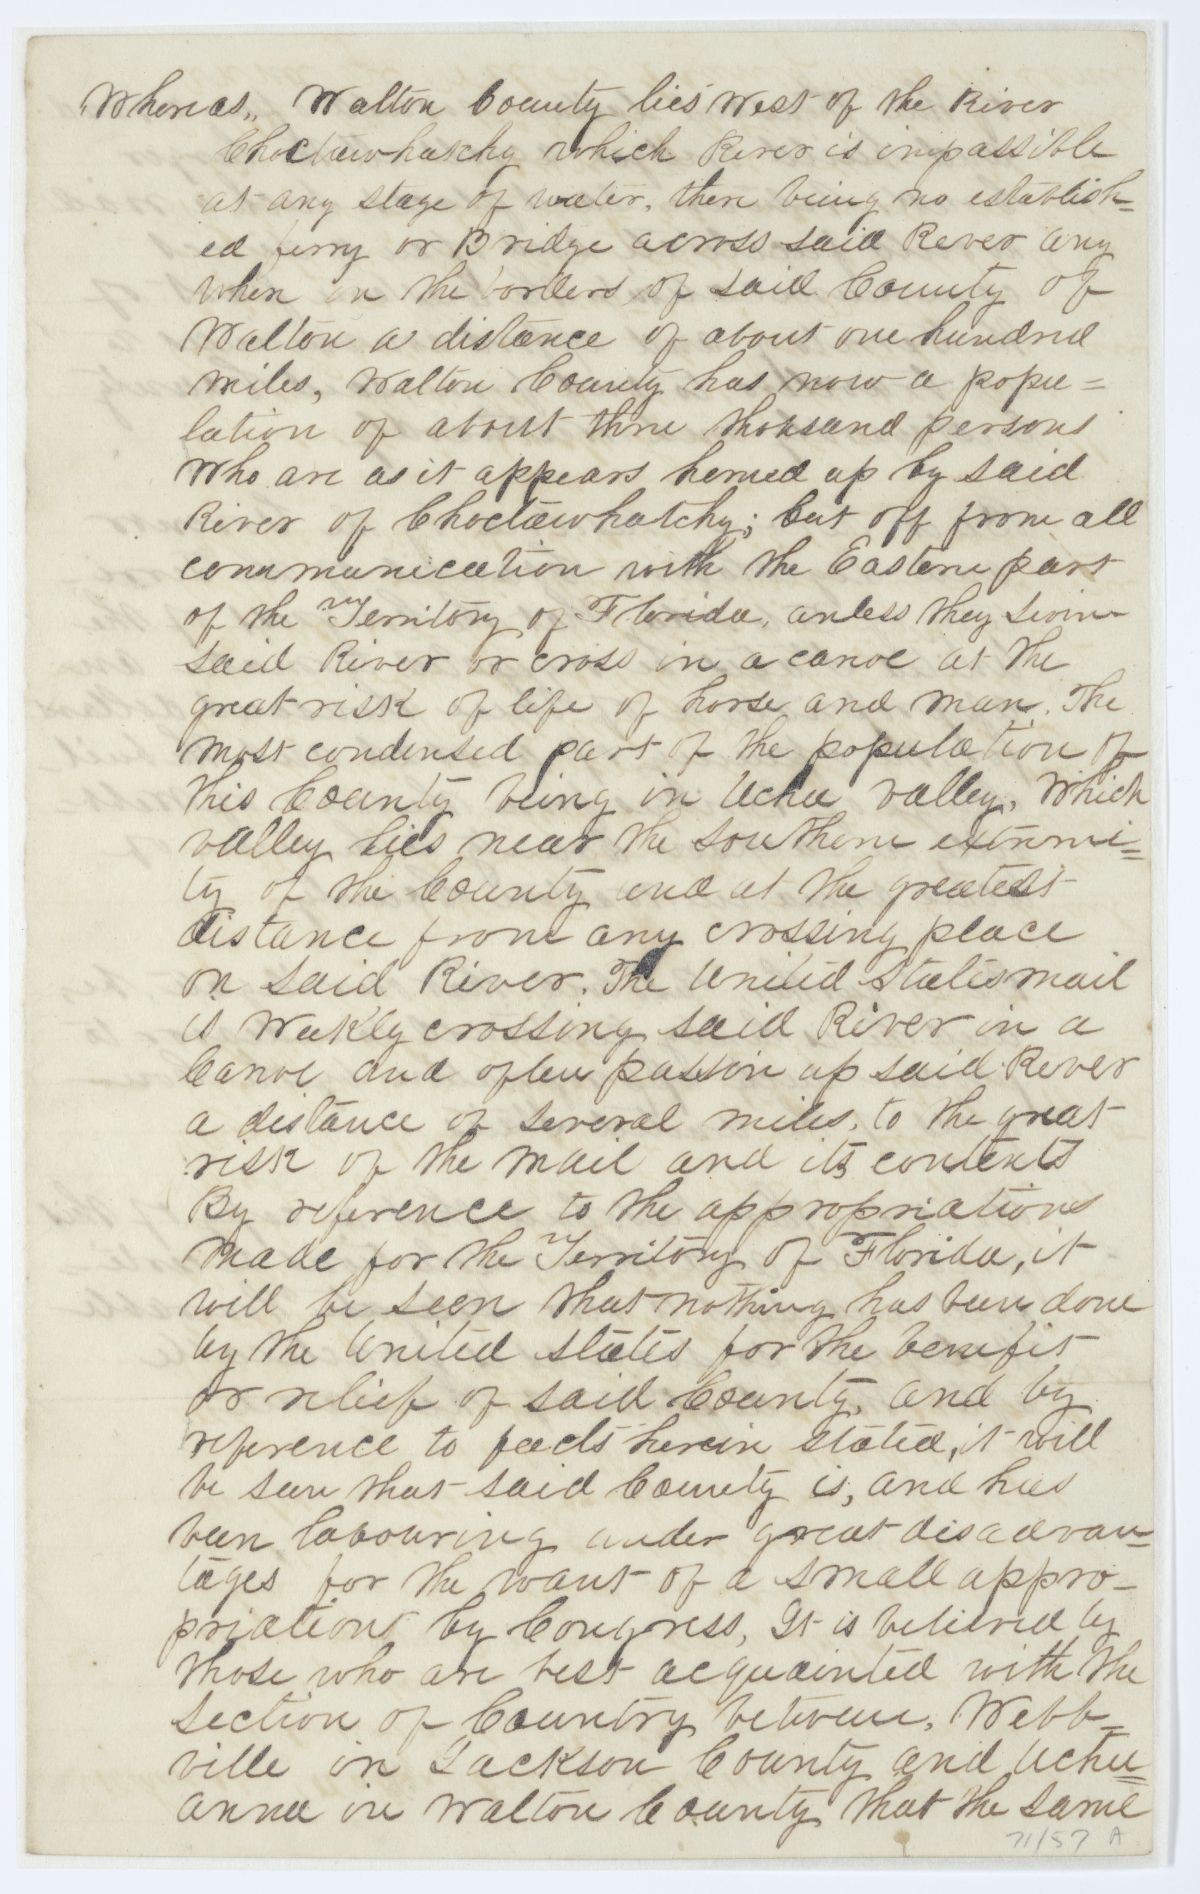 "Whereas,, Walton County lies West of the River
Choctawhatchy which River is impassible
at any stage of water, there being no establish=
ed ferry or Bridge across said River any
where in the borders of said County of
Walton a distance of about one hundred
miles, Walton County has now a popu=
lation of about three thousand persons
Who are as it appears hemed up by said
River of Choctawhatchy; Cut off from all
communication with the Eastern part
of the Territory of Florida, unless they swim
said River or cross in a canoe at the
great risk of life of horse and man. The
most condensed part of the population of
this County being in Uchee valley, Which
valley lies near the Southern extremi=
ty of the County and at the greatest
distance from any crossing place
on said River. The United States mail
is Weekly crossing said River in a
Canoe and often passin up said River
a distance of several miles, to the great
risk of the mail and its contents
By reference to the appropriations
made for the Territory of Florida, it
will be seen that nothing has been done
by the United States for the benefit
or relief of said County, and by
reference to facts herein stated, it will
be seen that said County is, and has
been labouring under great disadvan=
tages for the want of a small appro-
priation by Congress, It is believed by
those who are best acquainted with the
section of Country between, Webb=
ville in Jackson County and Uchee=
anna in Walton County that the same
71/57 A